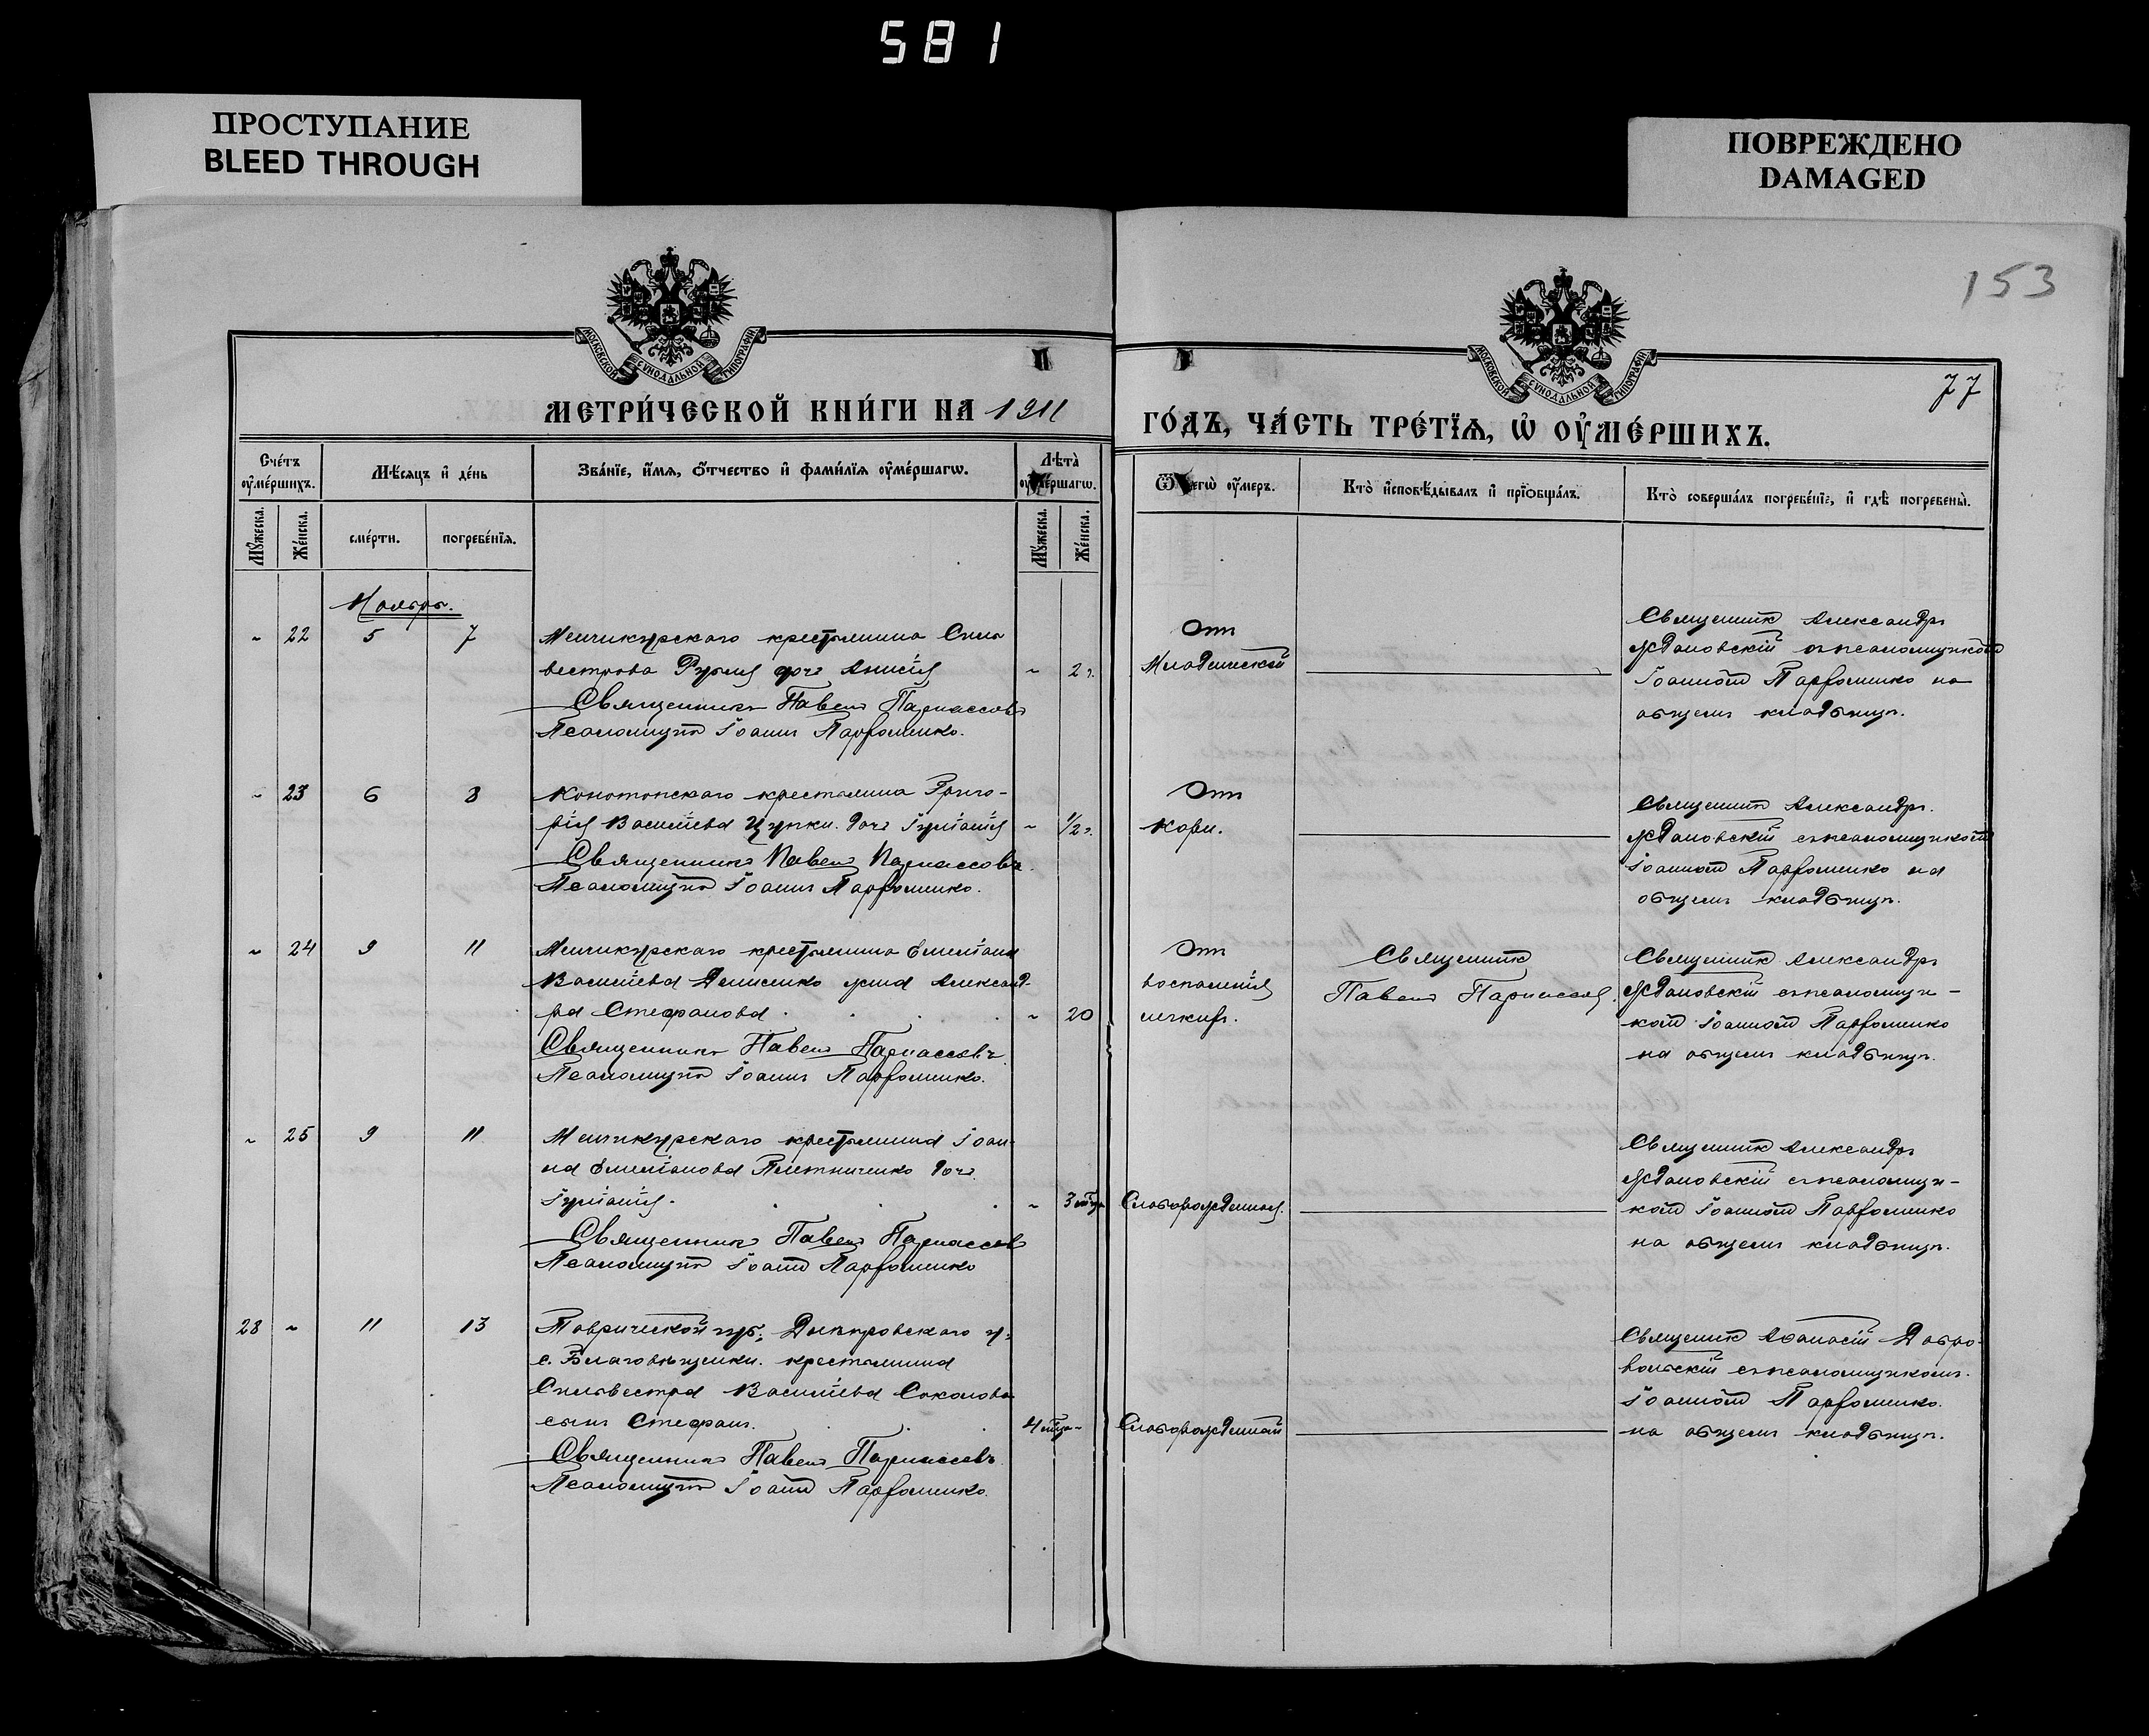 581
ПРОСТУПАНИЕ
BLEED THROUGH
ПОВРЕЖДЕНО
DAMAGED
153
77
МОСКОВСКОЙ СѴНОДАЛЬНОЙ ТИПОГРАФІИ
МОСКОВСКОЙ СѴНОДАЛЬНОЙ ТИПОГРАФІИ
МЕТРИ́ЧЕСКОЙ КНИ́ГИ НА 1911
ГО́ДЪ, ЧА́СТЬ ТРЕ́ТЇѦ, Ѡ҆ ОУ҆МЕ́РШИХЪ.
Сче́тъ оу҆ме́ршихъ.
Мѣ́сѧцъ и҆ де́нь
Зва́нїе, и҆́мѧ, ѻ҆́тчество и҆ фами́лїѧ оу҆ме́ршагѡ.
Лѣта̀ оу҆ме́ршагѡ.
Ѿ чегѡ̀ оу҆́меръ.
Кто̀ и҆сповѣ́дывалъ и҆ прїѻбща́лъ.
Кто̀ соверша́лъ погребе́нїе, и҆ гдѣ̀ погребены̀.
Му́жеска.
Же́нска.
сме́рти.
погребе́нїѧ.
Му́жеска.
Же́нска.
Ноябрь.
~ 22 5 7 Менчикурскаго крестьянина Силь
вестрова дочь Анисія ~ 2 г.
Священникъ Павелъ Парнассовъ
Псаломщикъ Іоаннъ Парфоменко.
Отъ
Младенческой
Священникъ Александръ
Ждановскій съ псаломщикомъ
Іоанномъ Парфоменко на
общемъ кладбищѣ.
~ 23 6 8 Конотопскаго крестьянина Григо-
рія Васильева Цупки. дочь Іуліанія ~ 1/2 г.
Священникъ Павелъ Парнассовъ.
Псаломщикъ Іоаннъ Парфоменко.
Отъ
Кори.
Священникъ Александръ.
Ждановскій съ псаломщикомъ
Іоанномъ Парфоменко на
общемъ кладбищѣ.
~ 24 9 11 Менчикурскаго крестьянина Емеліана
Васильева Денисенко жена Александ-
ра Стефанова. ~ 20
Священникъ Павелъ Парнассовъ
Псаломщикъ Іоаннъ Парфоменко.
Отъ
воспаленія
легкихъ.
Священникъ
Павелъ Парнассов.
Священникъ Александръ
Ждановскій съ псаломщи-
комъ Іоанномъ Парфоменко
на общемъ кладбищѣ.
~ 25 9 11 Менчикурскаго крестьянина Іоан-
на Емеліанова Плетниченко дочь
Іуліанія. ~ 3 мѣся
Священникъ Павелъ Парнассов
Псаломщикъ Іоаннъ Парфоменко
Слаборожденная.
Священникъ Александръ
Ждановскій съ псаломщи-
комъ Іоанномъ Парфоменко
на общемъ кладбищѣ.
28 ~ 11 13 Таврической губ; Днѣпровскаго у:
с. Благовѣщенки. крестьянина
Сильвестра Васильева Соколова
сынъ Стефанъ. 4 мѣся ~
Священникъ Павелъ Парнассовъ
Псаломщикъ Іоаннъ Парфоменко.
Слаборожденный
Священникъ Аѳанасій Добро-
вольскій съ псаломщикомъ.
Іоанномъ Парфоменко.
на общемъ кладбищѣ.